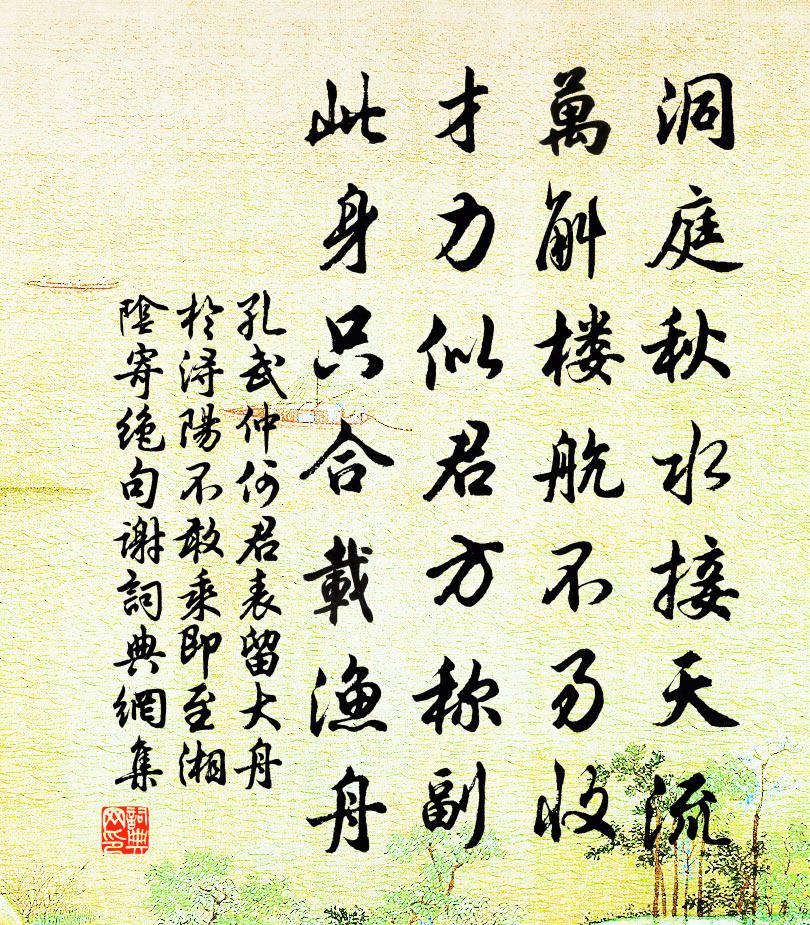 洞庭秋水接天流
萬斛楼航不易收
才力似君方称副
此身只合載漁舟
孔武仲何君表留大舟
於浔陽不敢乘即至湘
陰寄絶句謝詞典網集
詞典网印